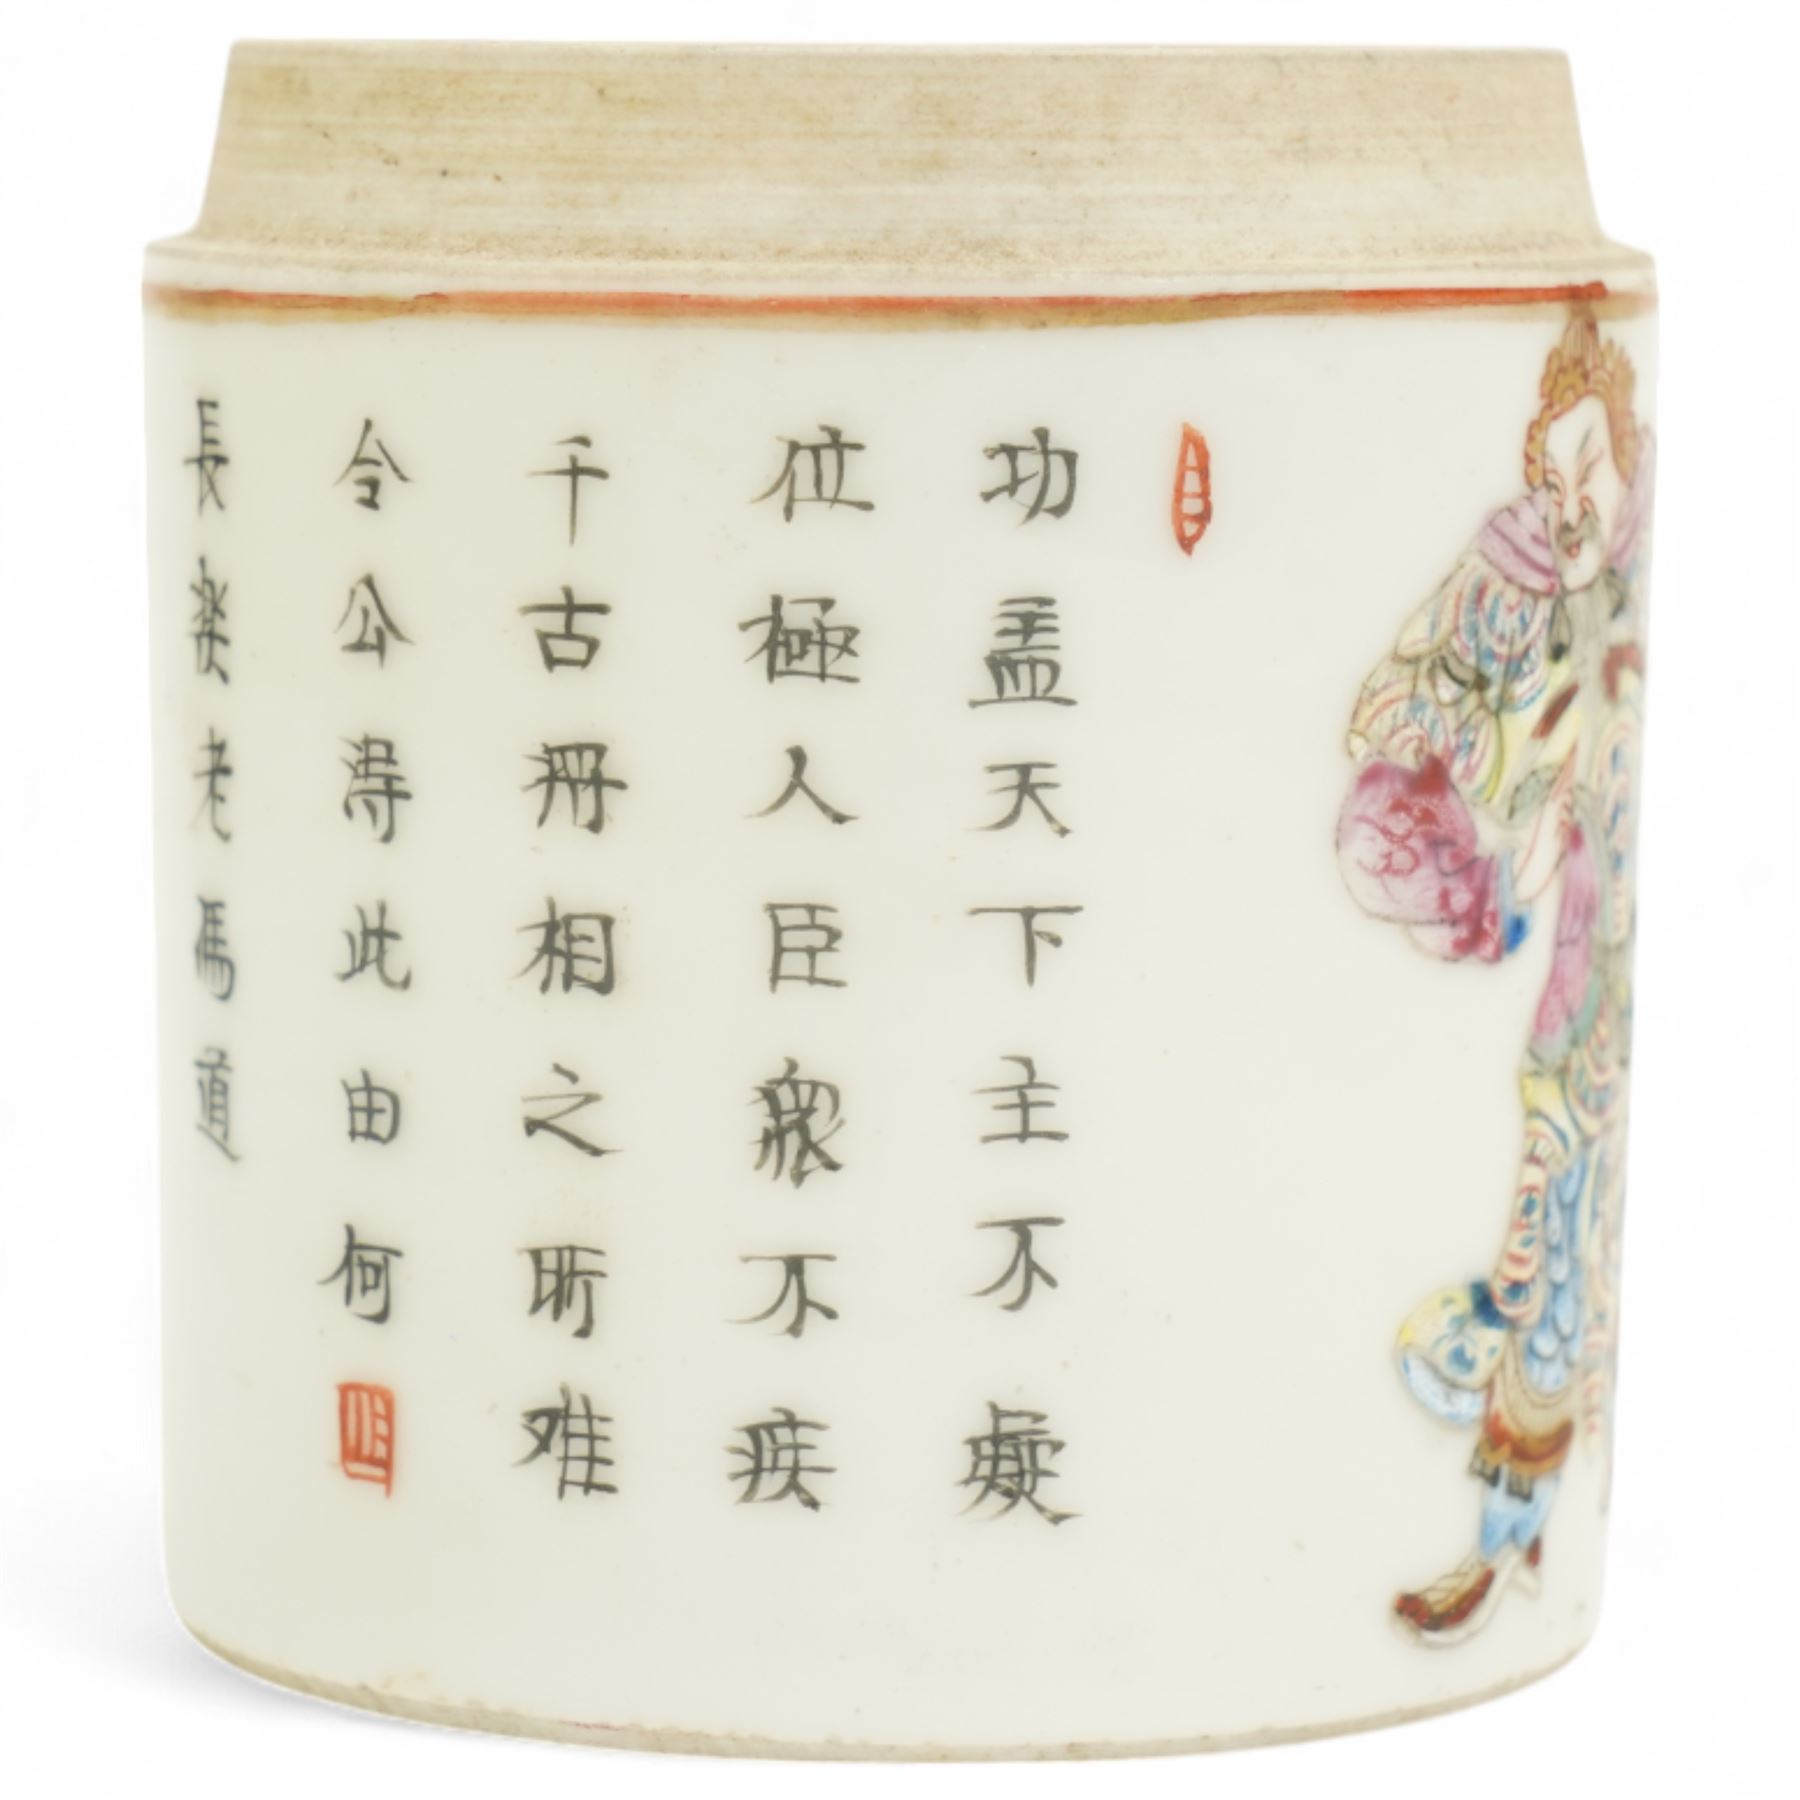 功盖天下主不疑
位極人臣衆不疾
千古冊相之所难
令公得此由何
長楽老馮道